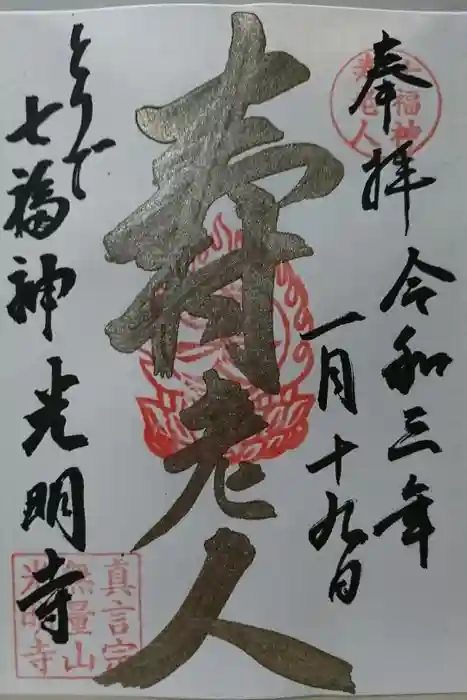 奉拝
七福神
寿老人
令和三年
一月十九日
寿老人
とりで
七福神 光明寺
真言宗
無量山
光明寺